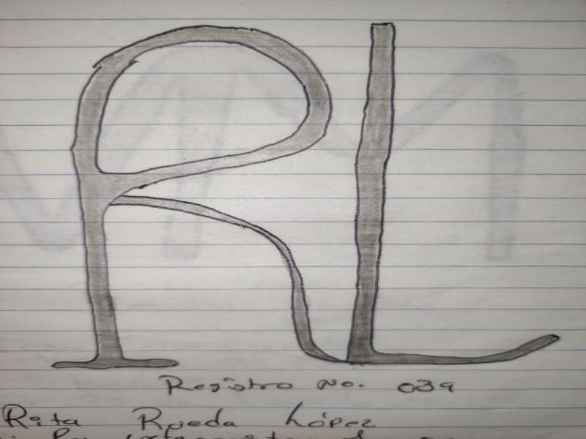 RL
Registro No. 039
Rita Rueda López